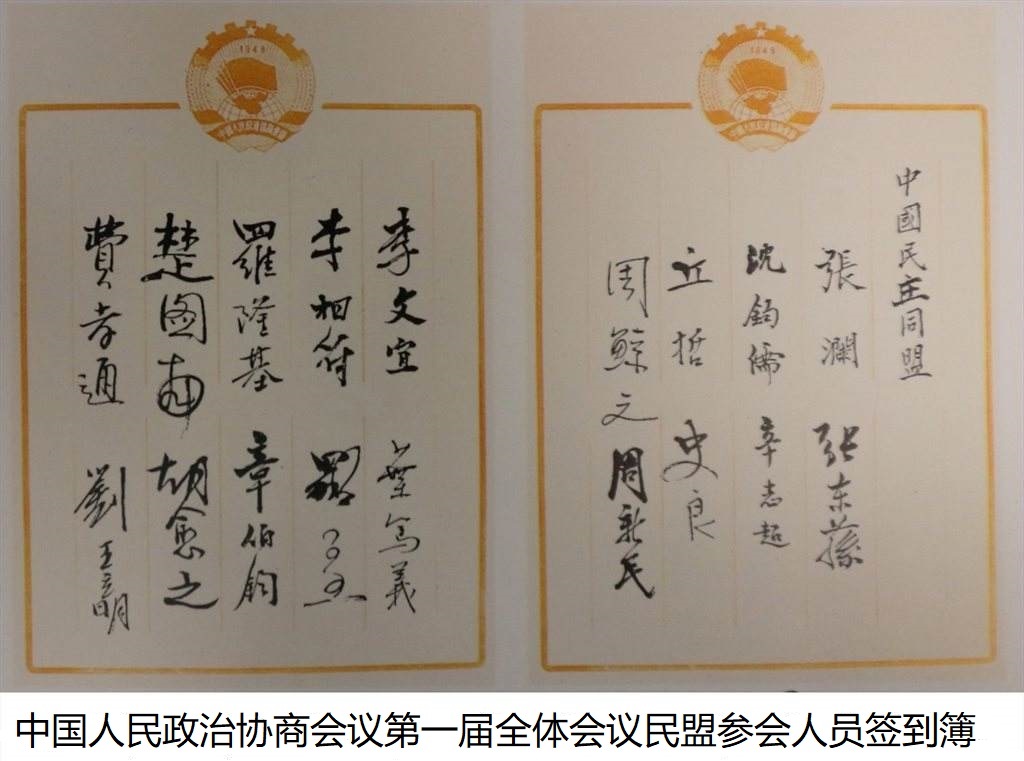 1949
1949
中國民主同盟
張瀾 张东蓀
沈鈞儒 辛志超
丘哲 史良
周鯨文 周新民
李文宜 葉篤義
李相符
羅隆基 章伯鈞
楚图南 胡愈之
費孝通 劉王立明
中国人民政治协商会议第一届全体会议民盟参会人员签到簿